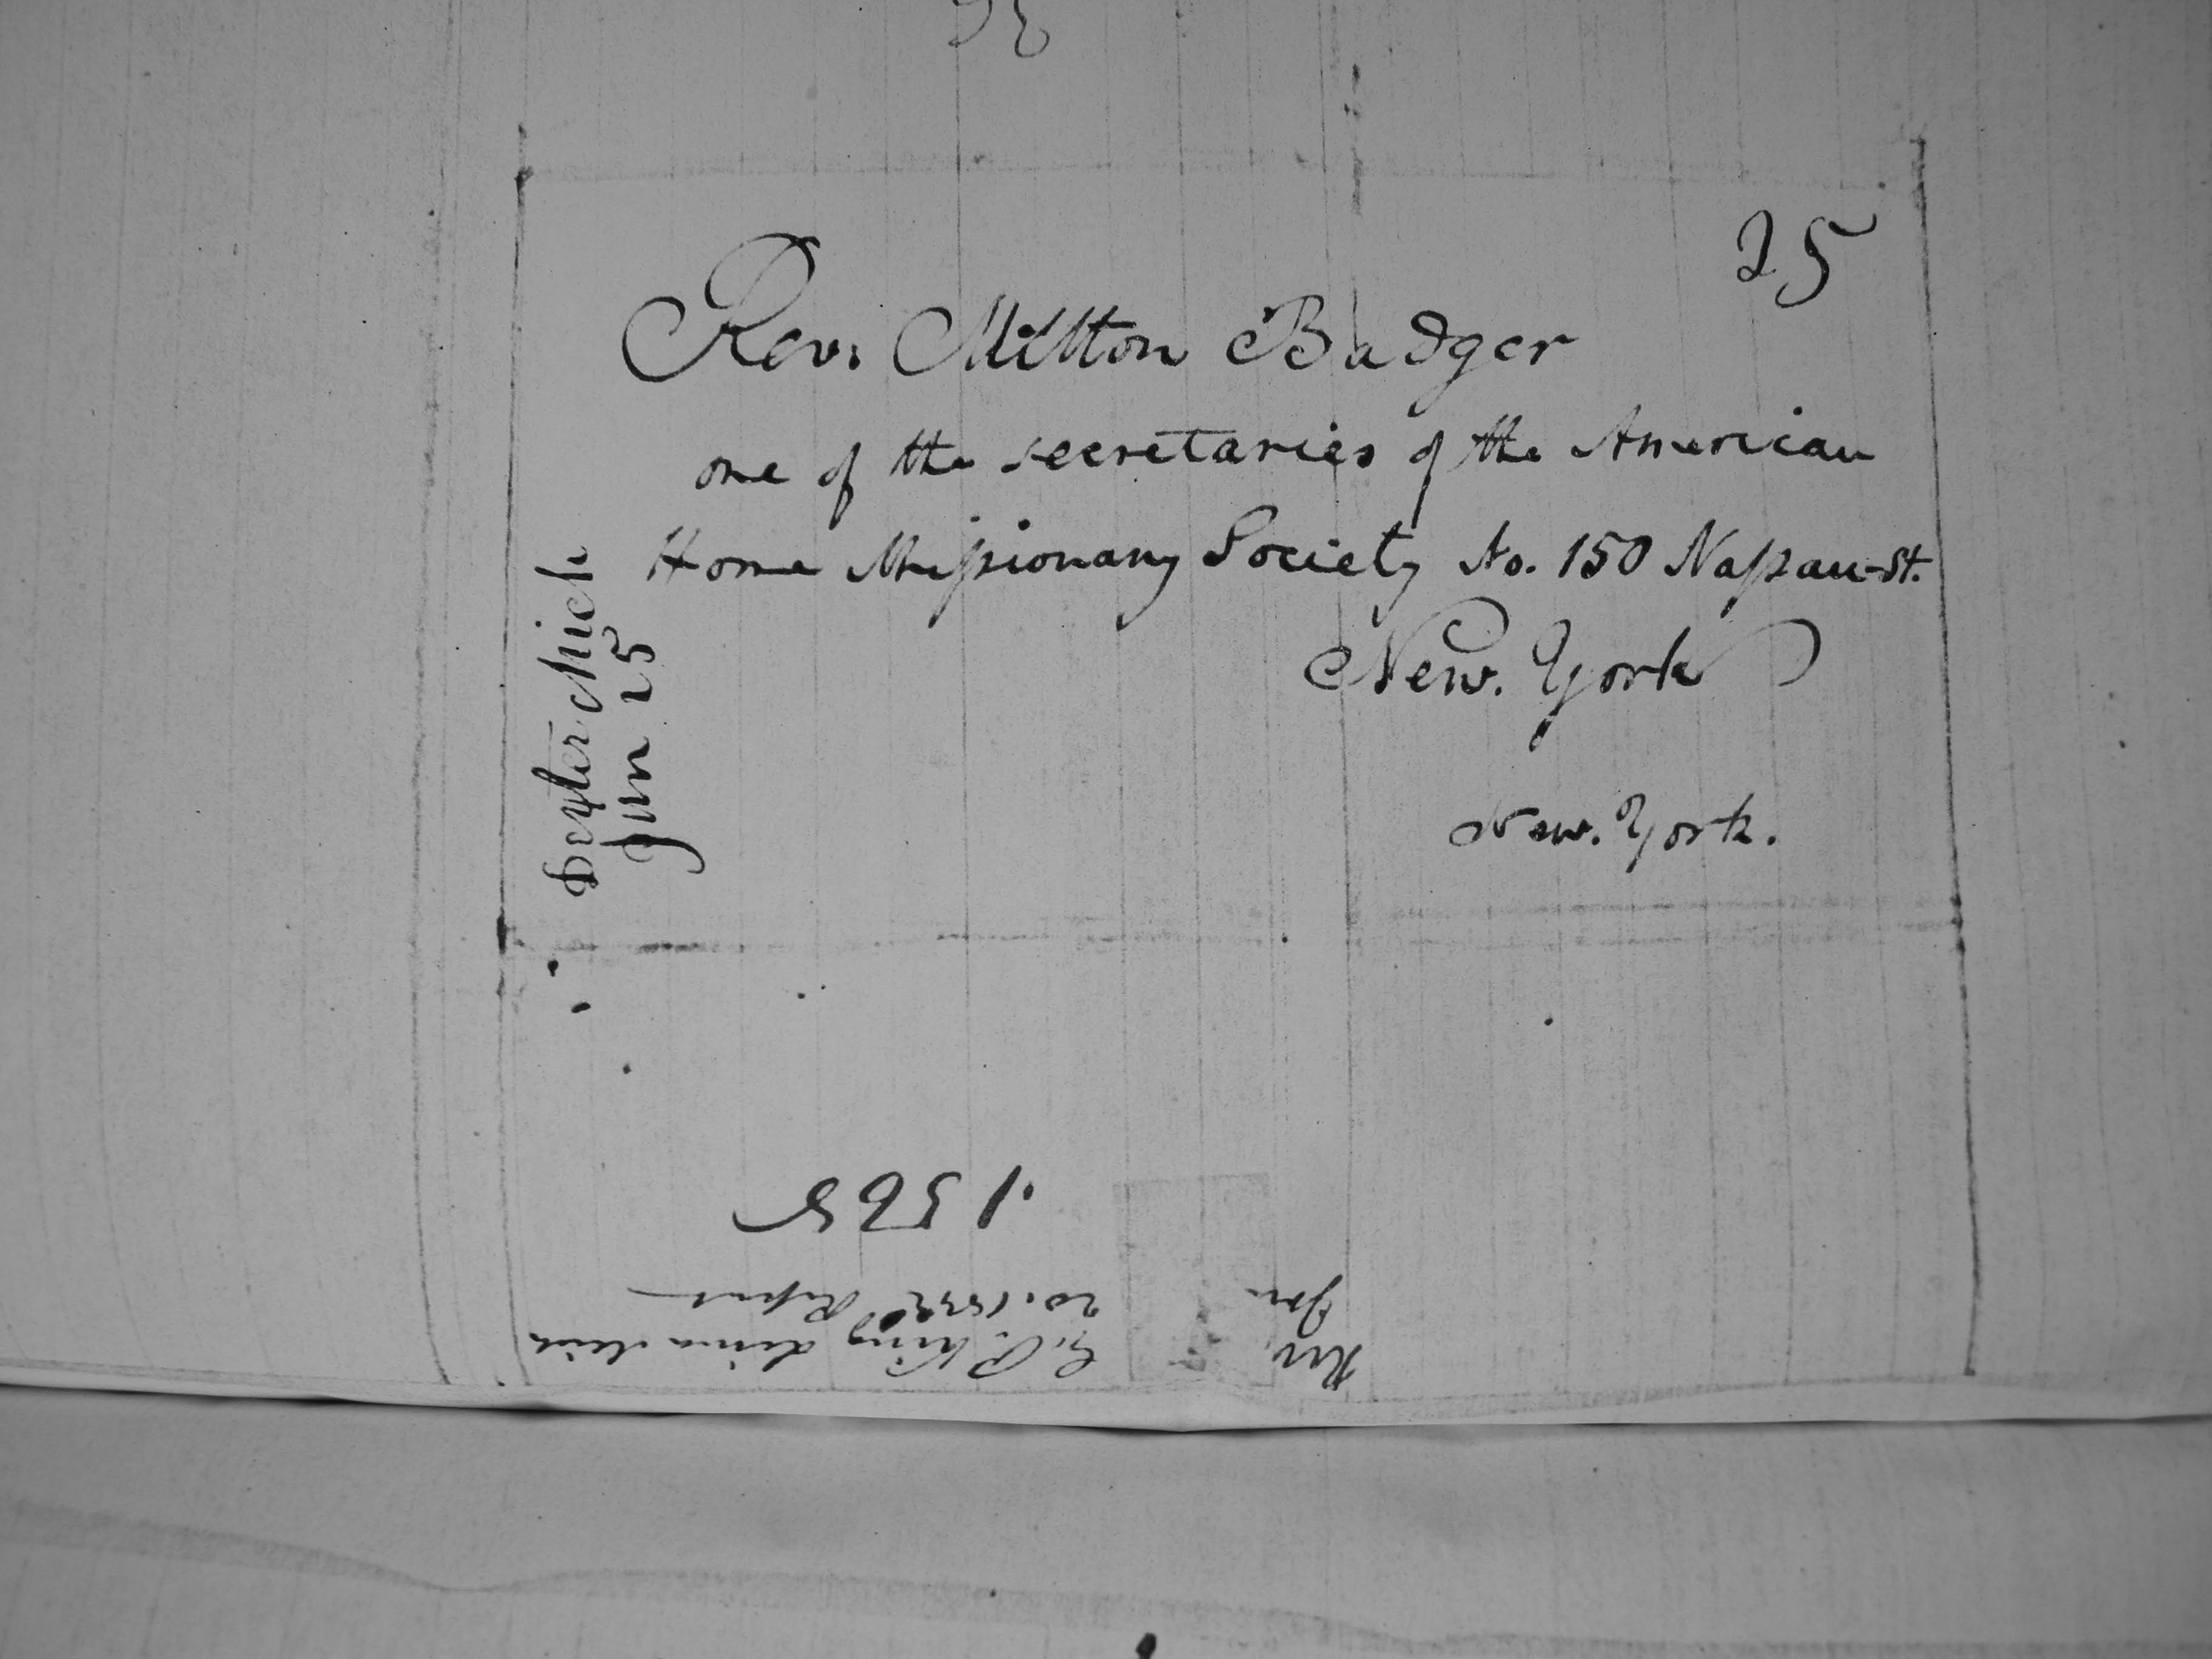 25
Rev. Milton Badger
one of the secretaries of the American
Home Missionary Society No. 150 Nassau-St.
New. York
New. York.
Dexter Mich
Jan 25
1568
Rev. G. P. King Lima Mich
Jan 20. Report